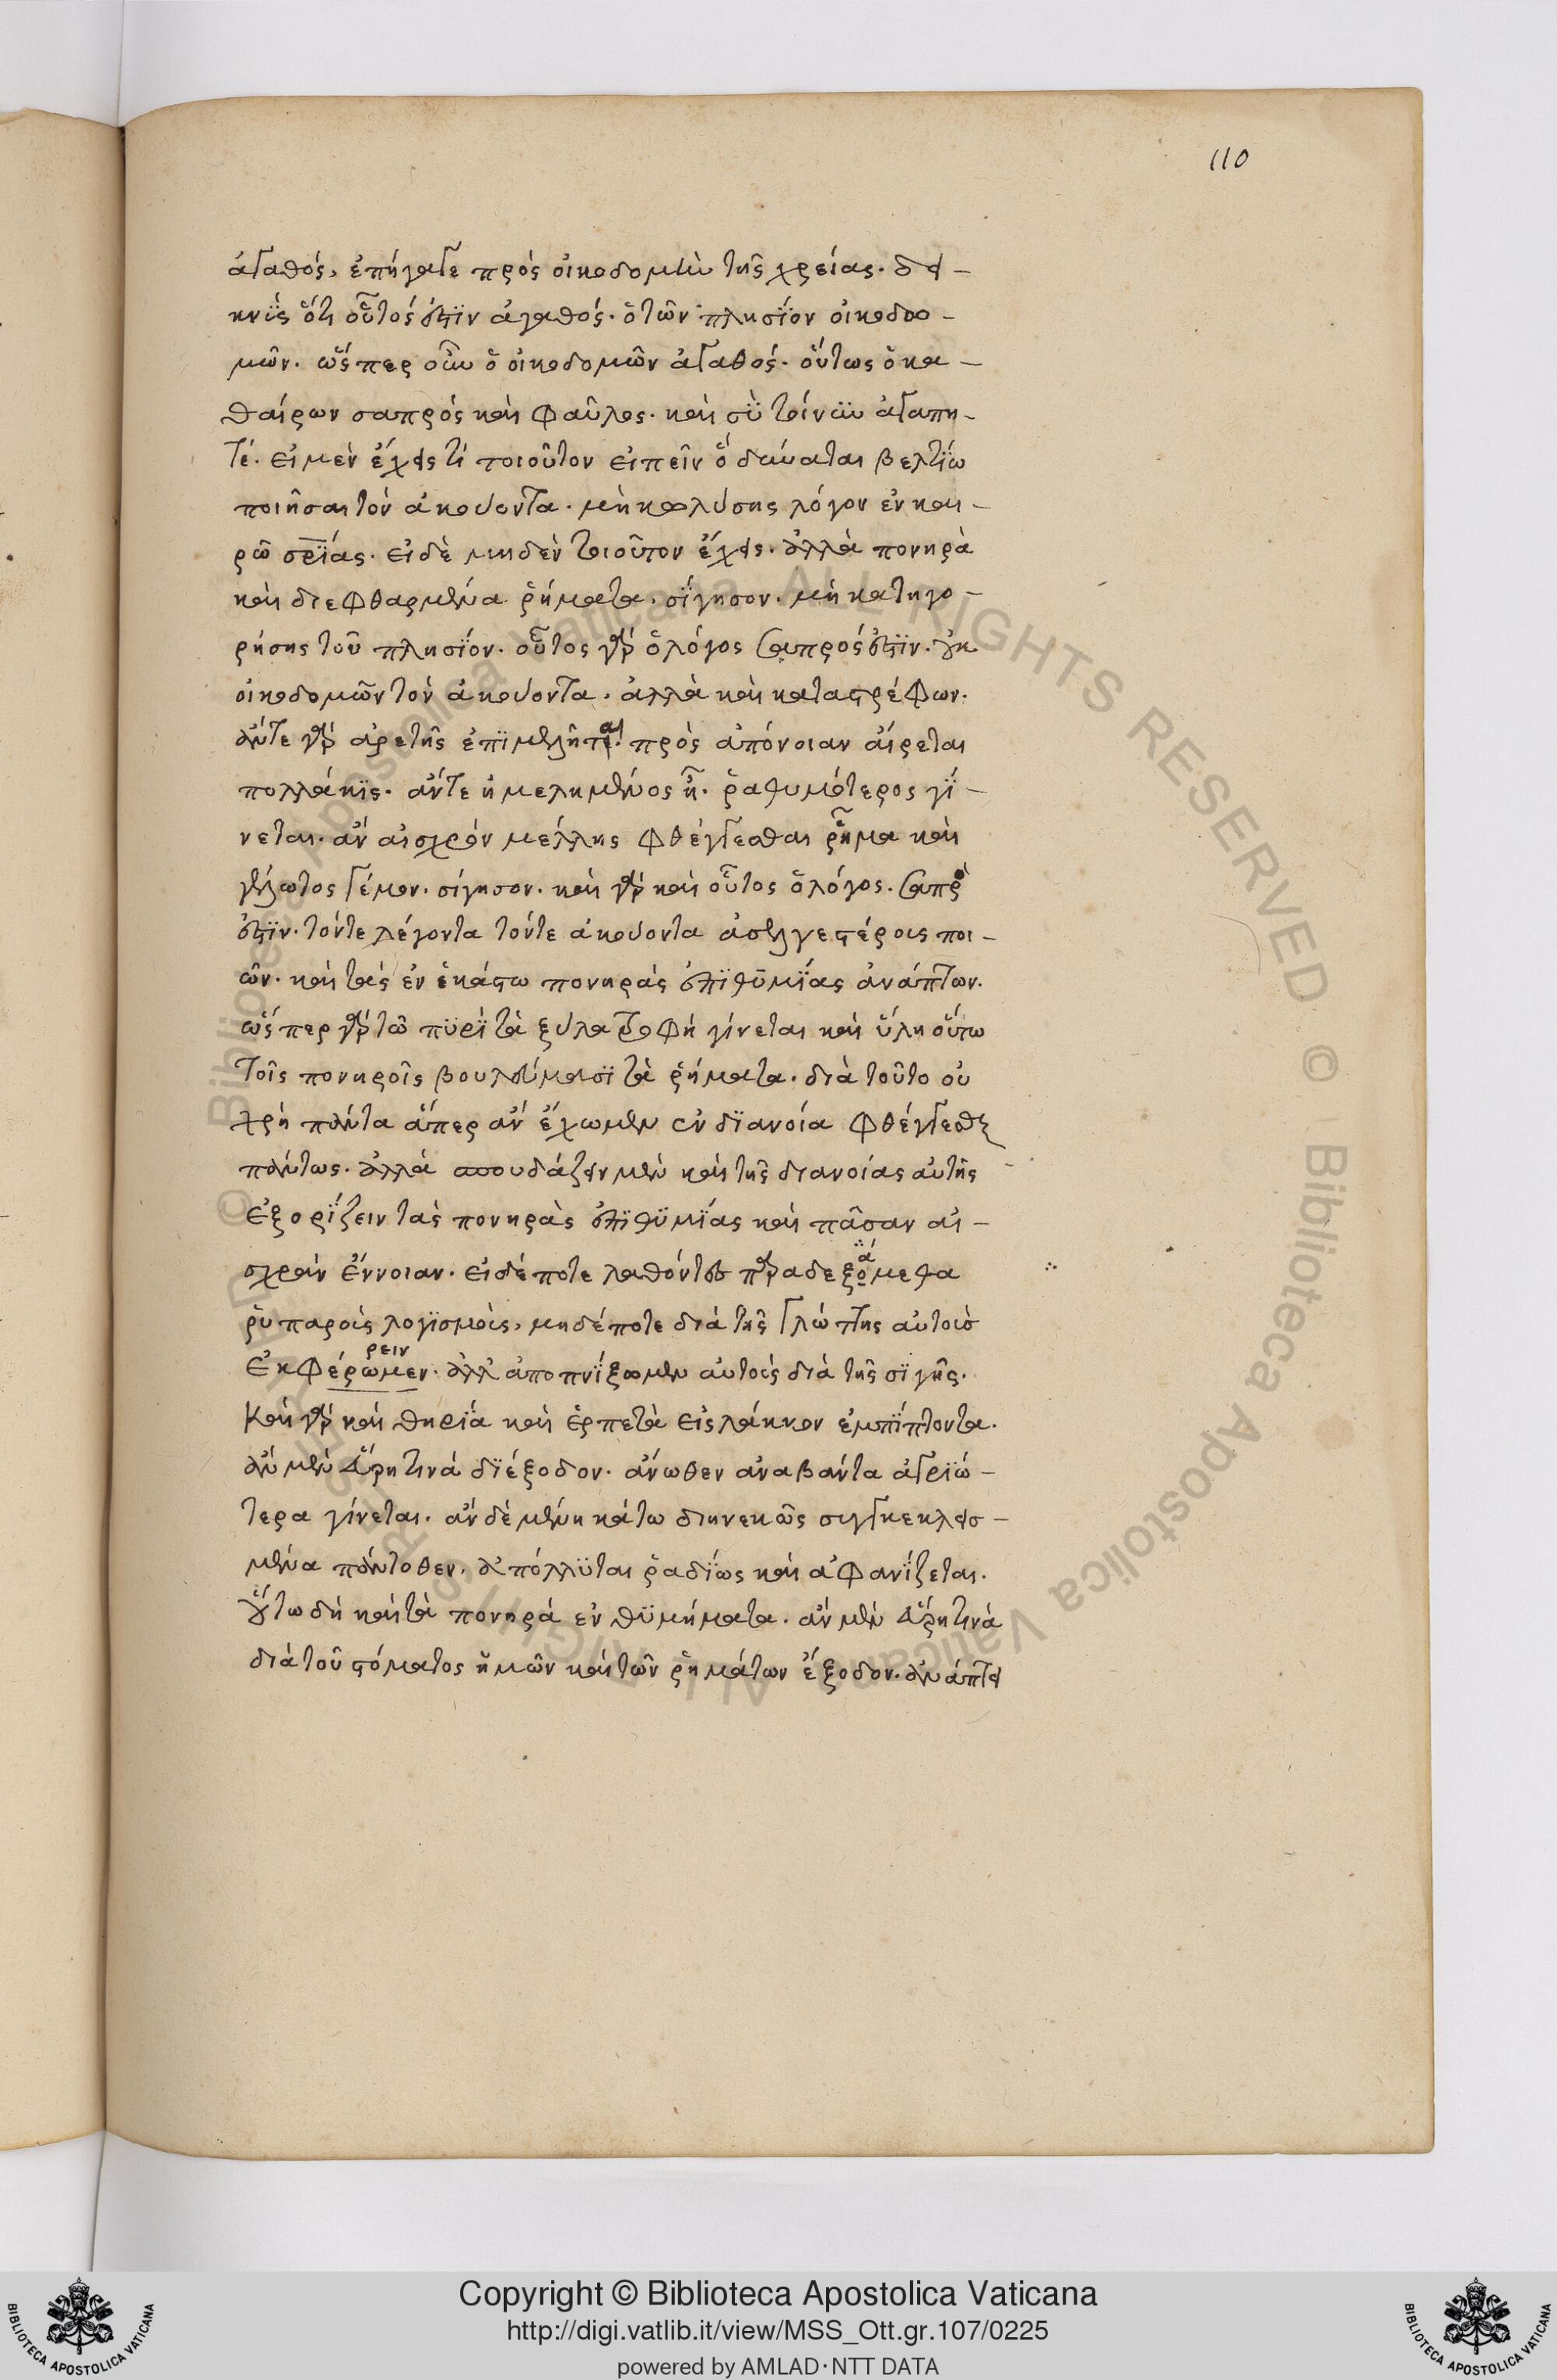 110
ἀγαθός, ἐπήγαγε πρὸς οἰκοδομὴν τῆς χρείας. δει-
κνὺς ὅτι οὗτός ἐστιν ἀγαθός. ὁ τῶν πλησίον οἰκοδο-
μῶν. ὥσπερ οὖν ὁ οἰκοδομῶν ἀγαθός. οὕτως ὁ κα-
θαίρων σαπρὸς καὶ φαῦλος. καὶ σὺ τοίνυν ἀγαπη-
τέ. εἰ μὲν ἔχεις τί τοιοῦτον εἰπεῖν ὃ δύναται βελτίω
ποιῆσαι τὸν ἀκούοντα. μὴ κωλύσης λόγον ἐν και-
ρῶ σρίας. εἰ δὲ μηδὲν τοιοῦτον ἔχεις. ἀλλὰ πονηρὰ
καὶ διεφθαρμένα ῥήματα. σίγησον. μὴ κατηγο-
ρήσης τοῦ πλησίον. οὗτος γὰρ ὁ λόγος σαπρός ἐστιν. οὐκ
οἰκοδομῶν τὸν ἀκούοντα. ἀλλὰ καὶ καταστρέφων.
ἄν τε γὰρ ἀρετῆς ἐπιμελῆται. πρὸς ἀπόνοιαν αἴρεται
πολλάκις. ἄν τε ἠμελημένος ἦ. ῥαθυμότερος γί-
νεται. ἂν αἰσχρὸν μέλλης φθέγγεσθαι ῥῆμα καὶ
γέλωτος γέμον. σίγησον. καὶ γὰρ καὶ οὗτος ὁ λόγος. σαπρὸ
ἐστιν. τόν τε λέγοντα τόν τε ἀκούοντα ἀσελγεστέροις ποι-
ῶν. καὶ τὰς ἐν ἑκάστω πονηρὰς ἐπιθυμίας ἀνάπτων.
ὥσπερ γὰρ τῶ πυρὶ τὰ ξύλα τροφὴ γίνεται καὶ ὕλη οὕτω
τοῖς πονηροῖς βουλεύμασι τὰ ῥήματα. διὰ τοῦτο οὐ
χρὴ πάντα ἅπερ ἂν ἔχωμεν ἐν διανοία φθέγγεσθαι
πάντως. ἀλλὰ σπουδάζειν μὲν καὶ τῆς διανοίας αὐτῆς
ἐξορίζειν τὰς πονηρὰς ἐπιθυμίας καὶ πᾶσαν αἰ-
σχρὰν ἔννοιαν. εἰ δέ ποτε λαθόντες παραδεξόμεθα
ά
ῥυπαροὺς λογισμοὺς, μηδέποτε διὰ τῆς γλώττης αὐτοὺς
ἐκφέρωμεν. ἀλλ' ἀποπνίξωμεν αὐτοὺς διὰ τῆς σιγῆς.
ρειν
καὶ γὰρ καὶ θηρία καὶ ἑρπετὰ εἰς λάκκον ἐμπίπτοντα.
ἂν μὲν εὕρη τινὰ διέξοδον. ἄνωθεν ἀναβάντα ἀγριώ-
τερα γίνεται. ἂν δὲ μένη κάτω διηνεκῶς συγκεκλεισ-
μένα πάντοθεν. ἀπόλλυται ῥαδίως καὶ ἀφανίζεται.
οὕτω δὴ καὶ τὰ πονηρὰ ἐνθυμήματα. ἂν μὲν εὕρη τινὰ
διὰ τοῦ στόματος ἡμῶν καὶ τῶν ῥημάτων ἔξοδον. ἀνάπτει
© Biblioteca Apostolica Vaticana ALL RIGHTS RESERVED © Biblioteca Apostolica Vaticana ALL RIGHTS RESERVED
Copyright © Biblioteca Apostolica Vaticana
http://digi.vatlib.it/view/MSS_Ott.gr.107/0225
powered by AMLAD·NTT DATA
BIBLIOTECA APOSTOLICA VATICANA
BIBLIOTECA APOSTOLICA VATICANA